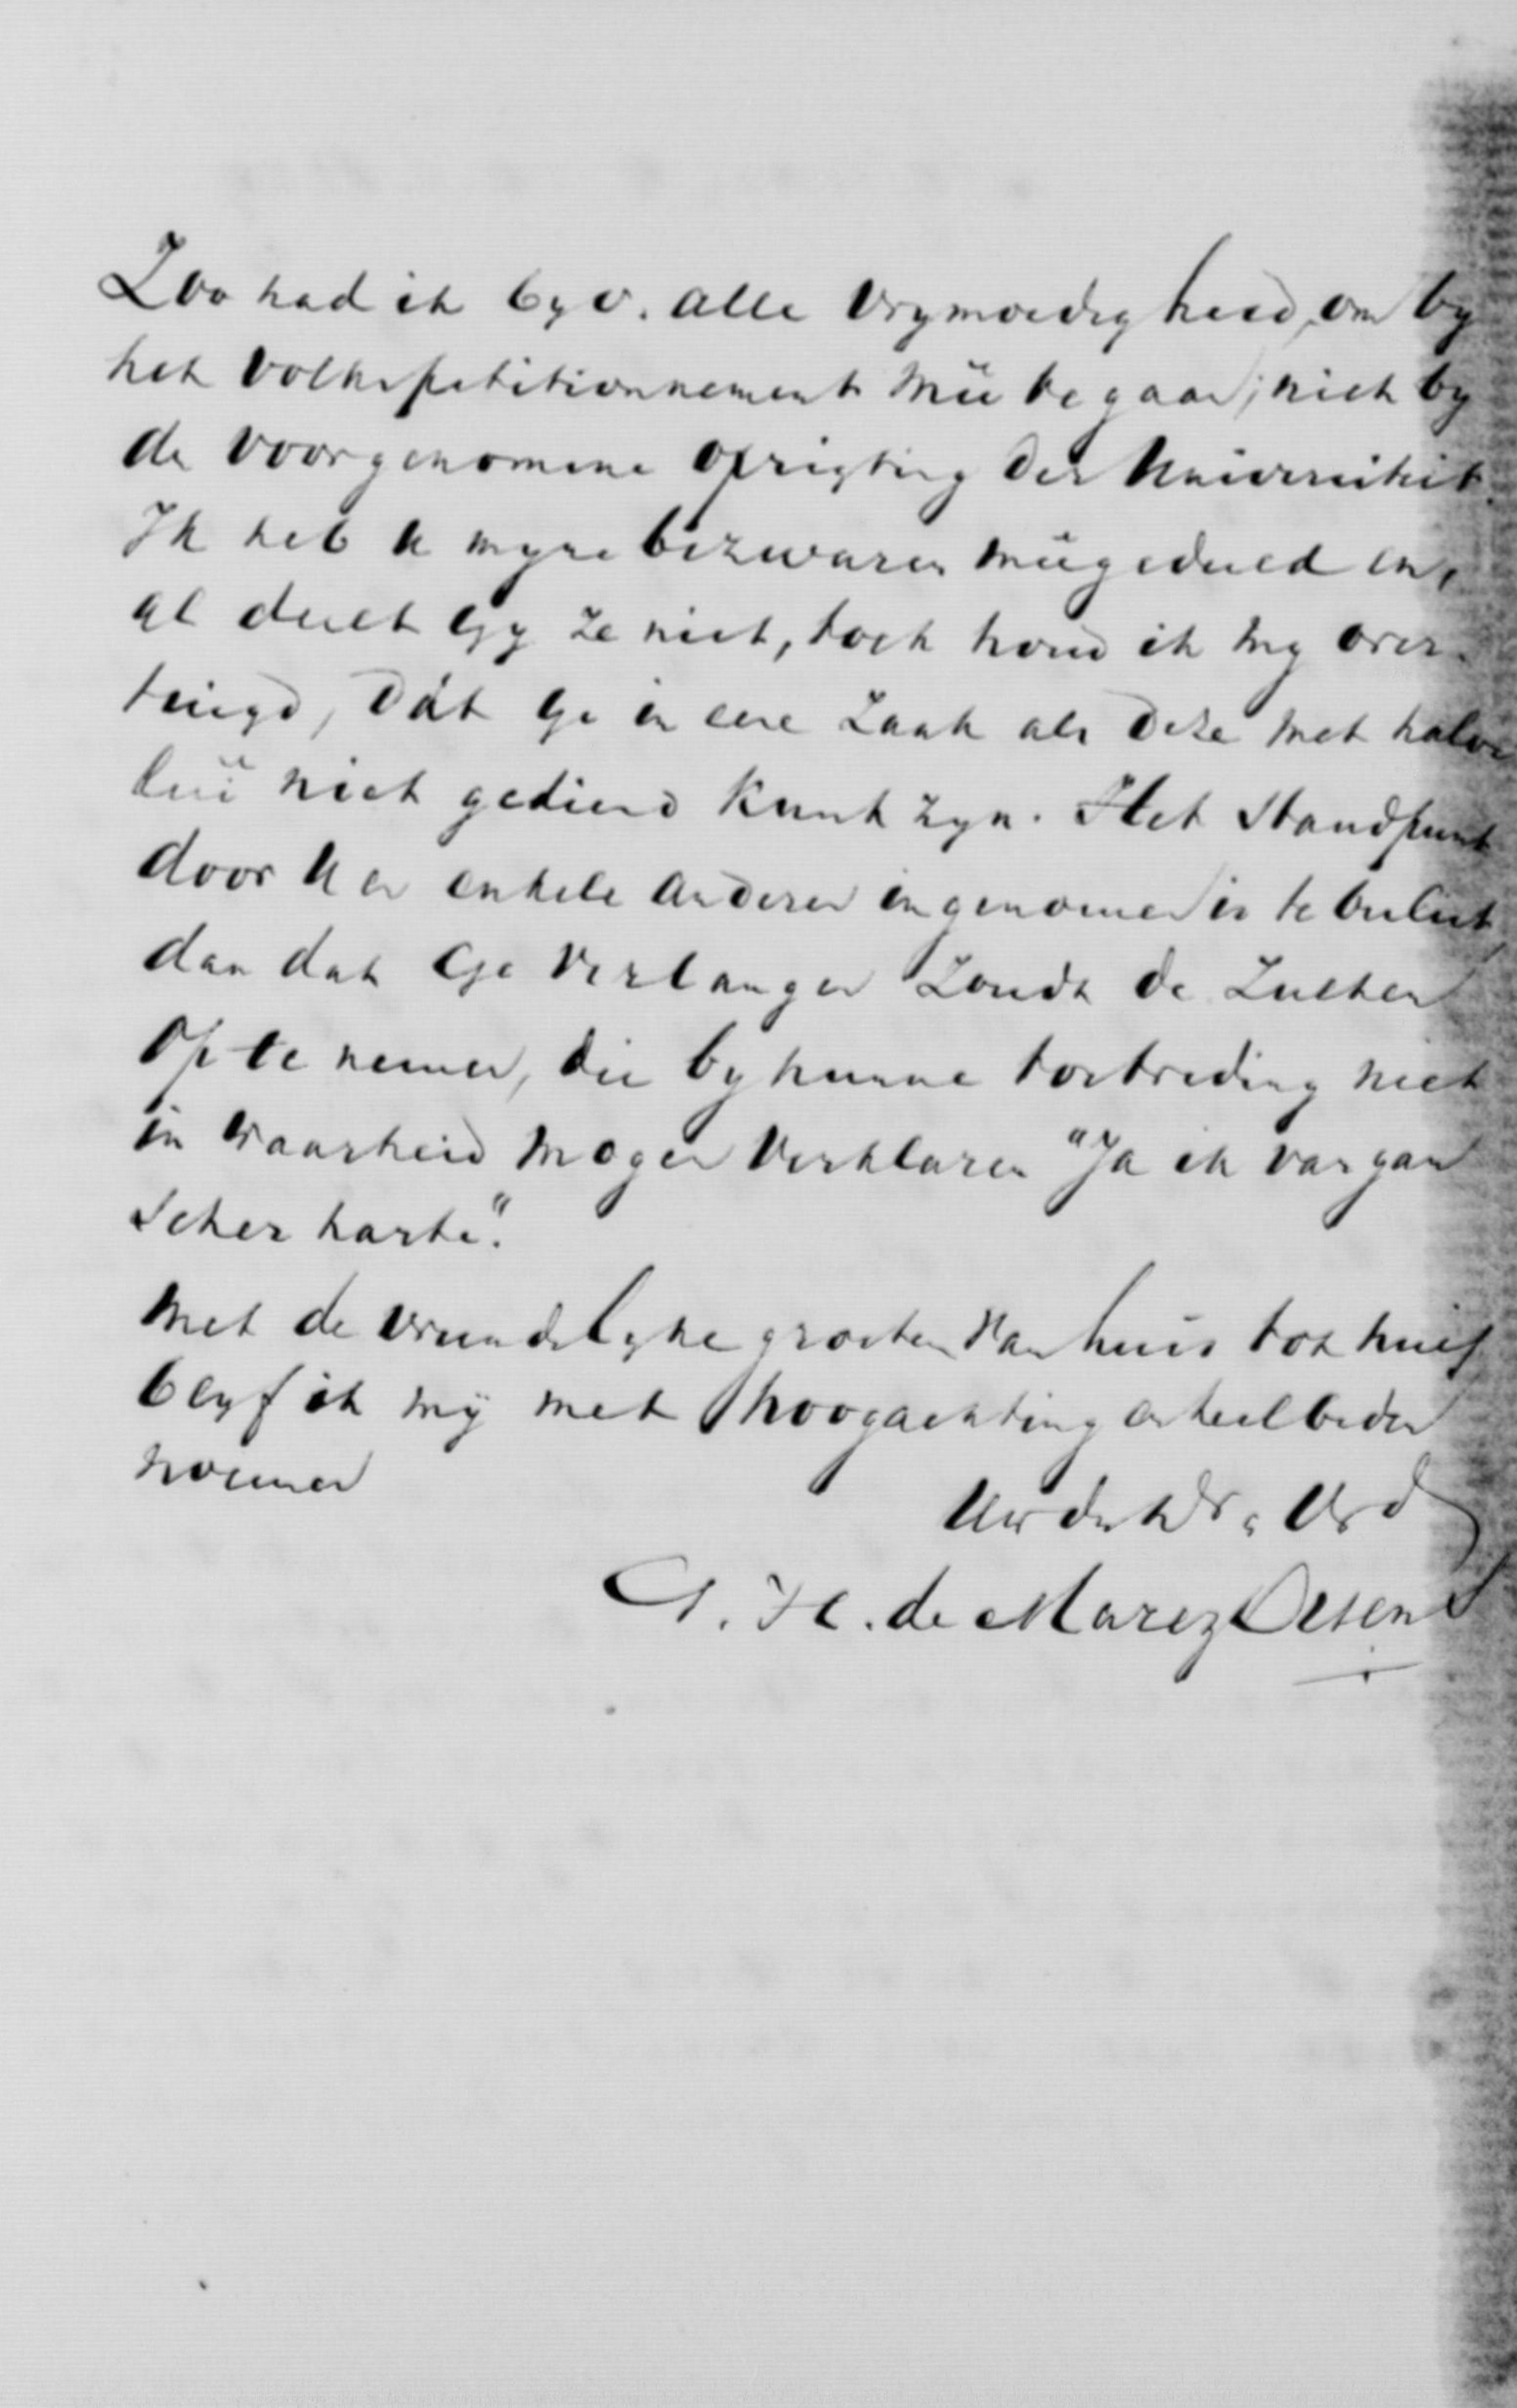 Zoo had ik byv. alle vrymoedigheid, om by
het volkspetitionnement meê te gaan; niet by
de voorgenomene oprigting der Universiteit.
Ik heb U myne bezwaren meêgedeeld en,
al deelt Gy ze niet, toch houd ik my over-
tuigd, dat Ge in eene zaak als deze met halve
luî niet gediend kunt zyn. Het Standpunt
door U en enkele anderen ingenomen is te beslist,
dan dat Ge verlangen zoudt de zulken
op te nemen, die by hunne toetreding niet
in waarheid mogen verklaren "Ja ik van gan
scher harte".
Met de vriendelyke groeten van huis tot huis
blyf ik my met hoogachting en heilbeden
noemen
Uw dw. Dr. en Vrd
C. H. de Marez Oyens